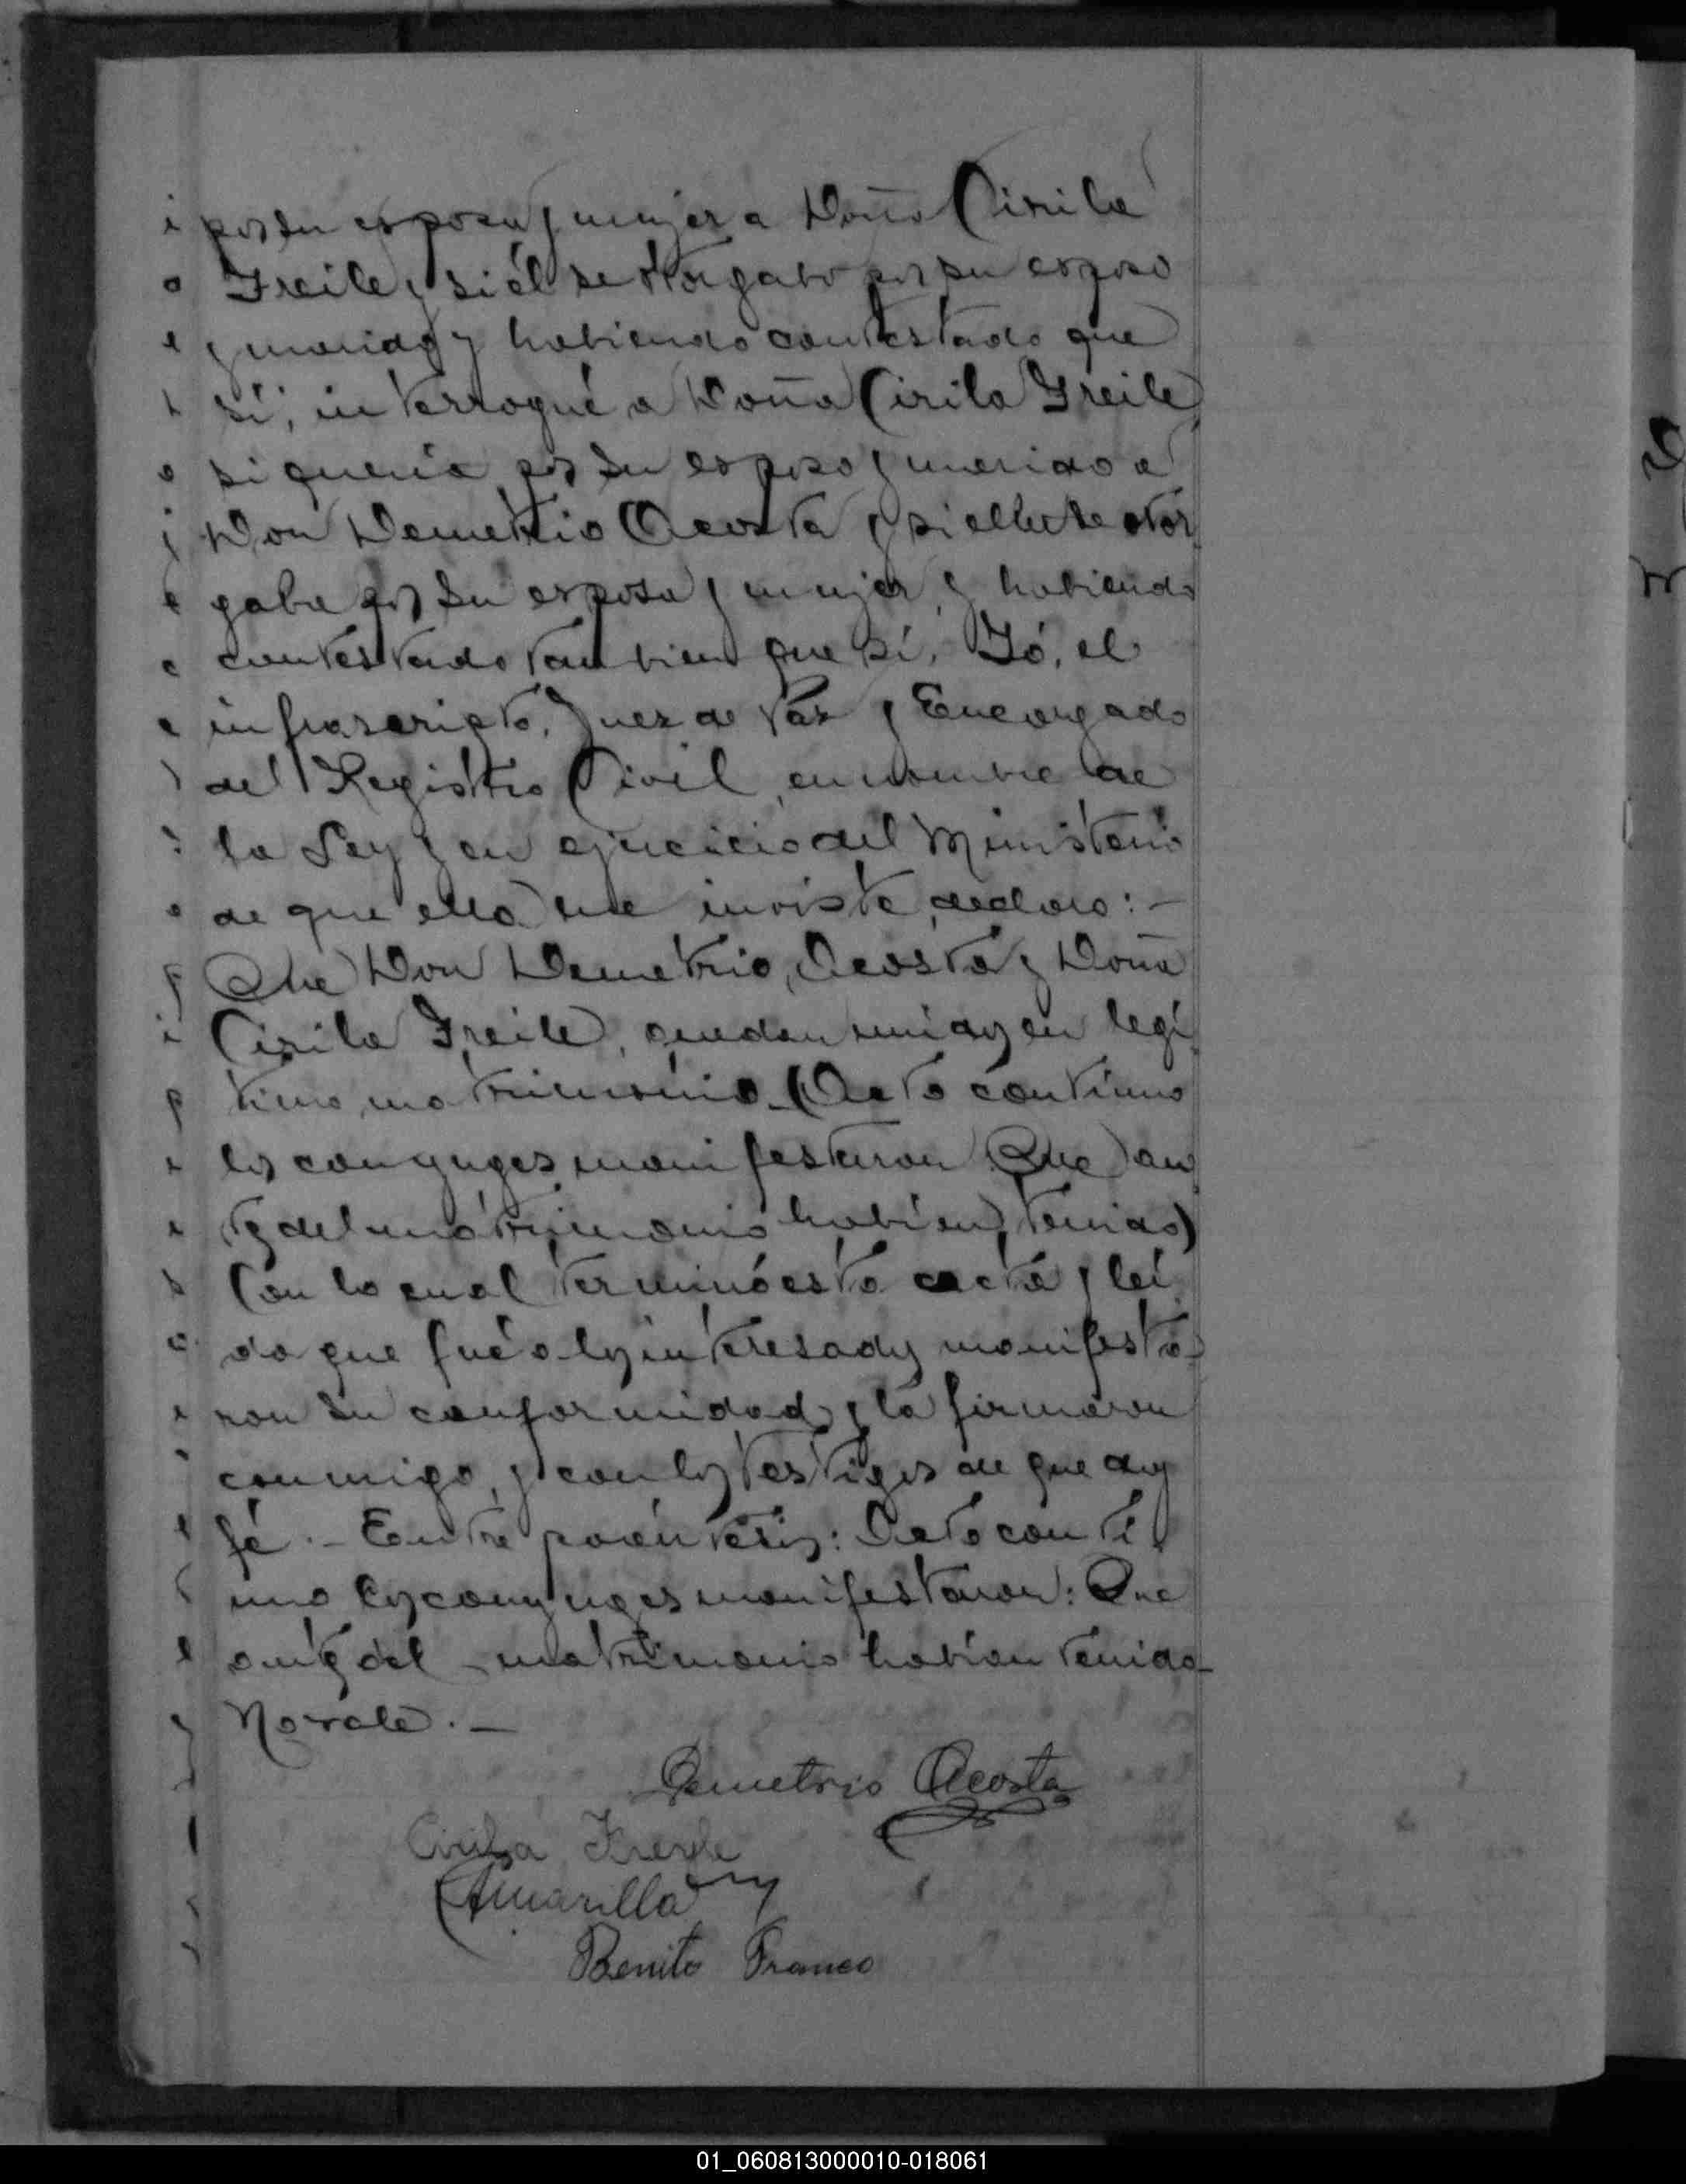 por su esposa y mujer a Doña Cirila
Freile y si él se otorgaba por su esposo
y marido y habiendo contestado que
sí; interrogué a Doña Cirila Freile
si quería por su esposo y marido a
Don Demetrio Acosta y si ella se otor
gaba por su esposa y mujer, y habiendo
contestado tambien que sí, Yó, el
infrascripto, Juez de Paz y Encargado
del Registro Civil, en nombre de
la Ley y en ejercicio del Ministerio
de que ella me inviste, declaro:-
Que Don Demetrio Acosta y Doña
Cirila Freile, quedan unidos en legí
timo matrimonio. (Acto contínuo
los conyuges manifestaron Que an
tes del matrimonio habían tenido)
Con lo cual terminó esta acta y leí
da que fué a los interesados manifesta-
ron su conformidad y la firmaron
conmigo, y con los testigos de que doy
fé.- Entre paréntesis: Acto contí
nuo los conyuges manifestaron: Que
antes del matrimonio habían tenido-
No vale.-
Demetrio Acosta
Cirila Freyle
Amarilla
Benito Franco
01_060813000010-018061